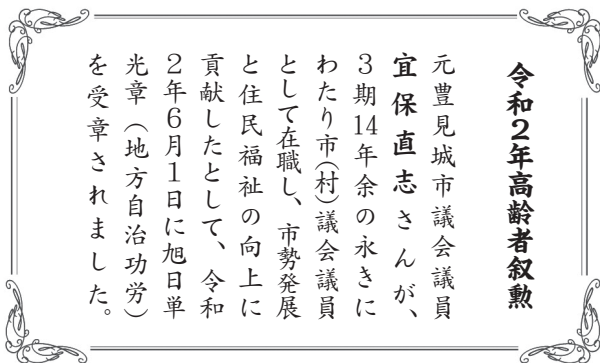 令和2年高齢者叙勲
元豊見城市議会議員
宜保直志さんが、
3期14年余の永きに
わたり市(村)議会議員
として在職し、市勢発展
と住民福祉の向上に
貢献したとして、令和
2年6月1日に旭日単
光章（地方自治功労）
を受章されました。